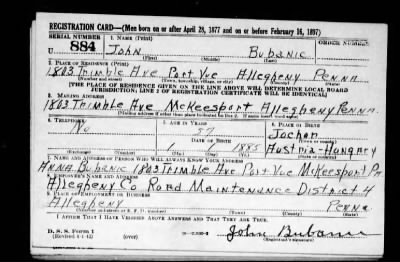 REGISTRATION CARD—(Men born on or after April 28, 1877 and on or before February 16, 1897)
SERIAL NUMBER 1. NAME (Print) ORDER NUMBER
U 884 John Bubanic
2. PLACE OF RESIDENCE (Print)
1803 Trimble Ave Port Vue Allegheny Penna
(Number and street) (Town, township, village, or city) (County) (State)
[THE PLACE OF RESIDENCE GIVEN ON THE LINE ABOVE WILL DETERMINE LOCAL BOARD
JURISDICTION; LINE 2 OF REGISTRATION CERTIFICATE WILL BE IDENTICAL]
3. MAILING ADDRESS
1803 Trimble Ave McKeesport Allegheny Penna.
[Mailing address if other than place indicated on line 2. If same insert word same]
4. TELEPHONE 5. AGE IN YEARS 6. PLACE OF BIRTH
No 57 Jochan
DATE OF BIRTH
1 1885 Austria-Hungary
(Exchange) (Number) (Mo.) (Day) (Yr.) (State or country)
7. NAME AND ADDRESS OF PERSON WHO WILL ALWAYS KNOW YOUR ADDRESS
Anna Bubanic 1803 Trimble Ave Port Vue McKeesport Pa
8. EMPLOYER'S NAME AND ADDRESS
Allegheny Co Road Maintenance District 4
9. PLACE OF EMPLOYMENT OR BUSINESS
Allegheny Penna
(Number and street or R. F. D. number) (Town) (County) (State)
I AFFIRM THAT I HAVE VERIFIED ABOVE ANSWERS AND THAT THEY ARE TRUE.
D. S. S. Form 1
(Revised 4-1-42) (over) John Bubanic
(Registrant's signature)